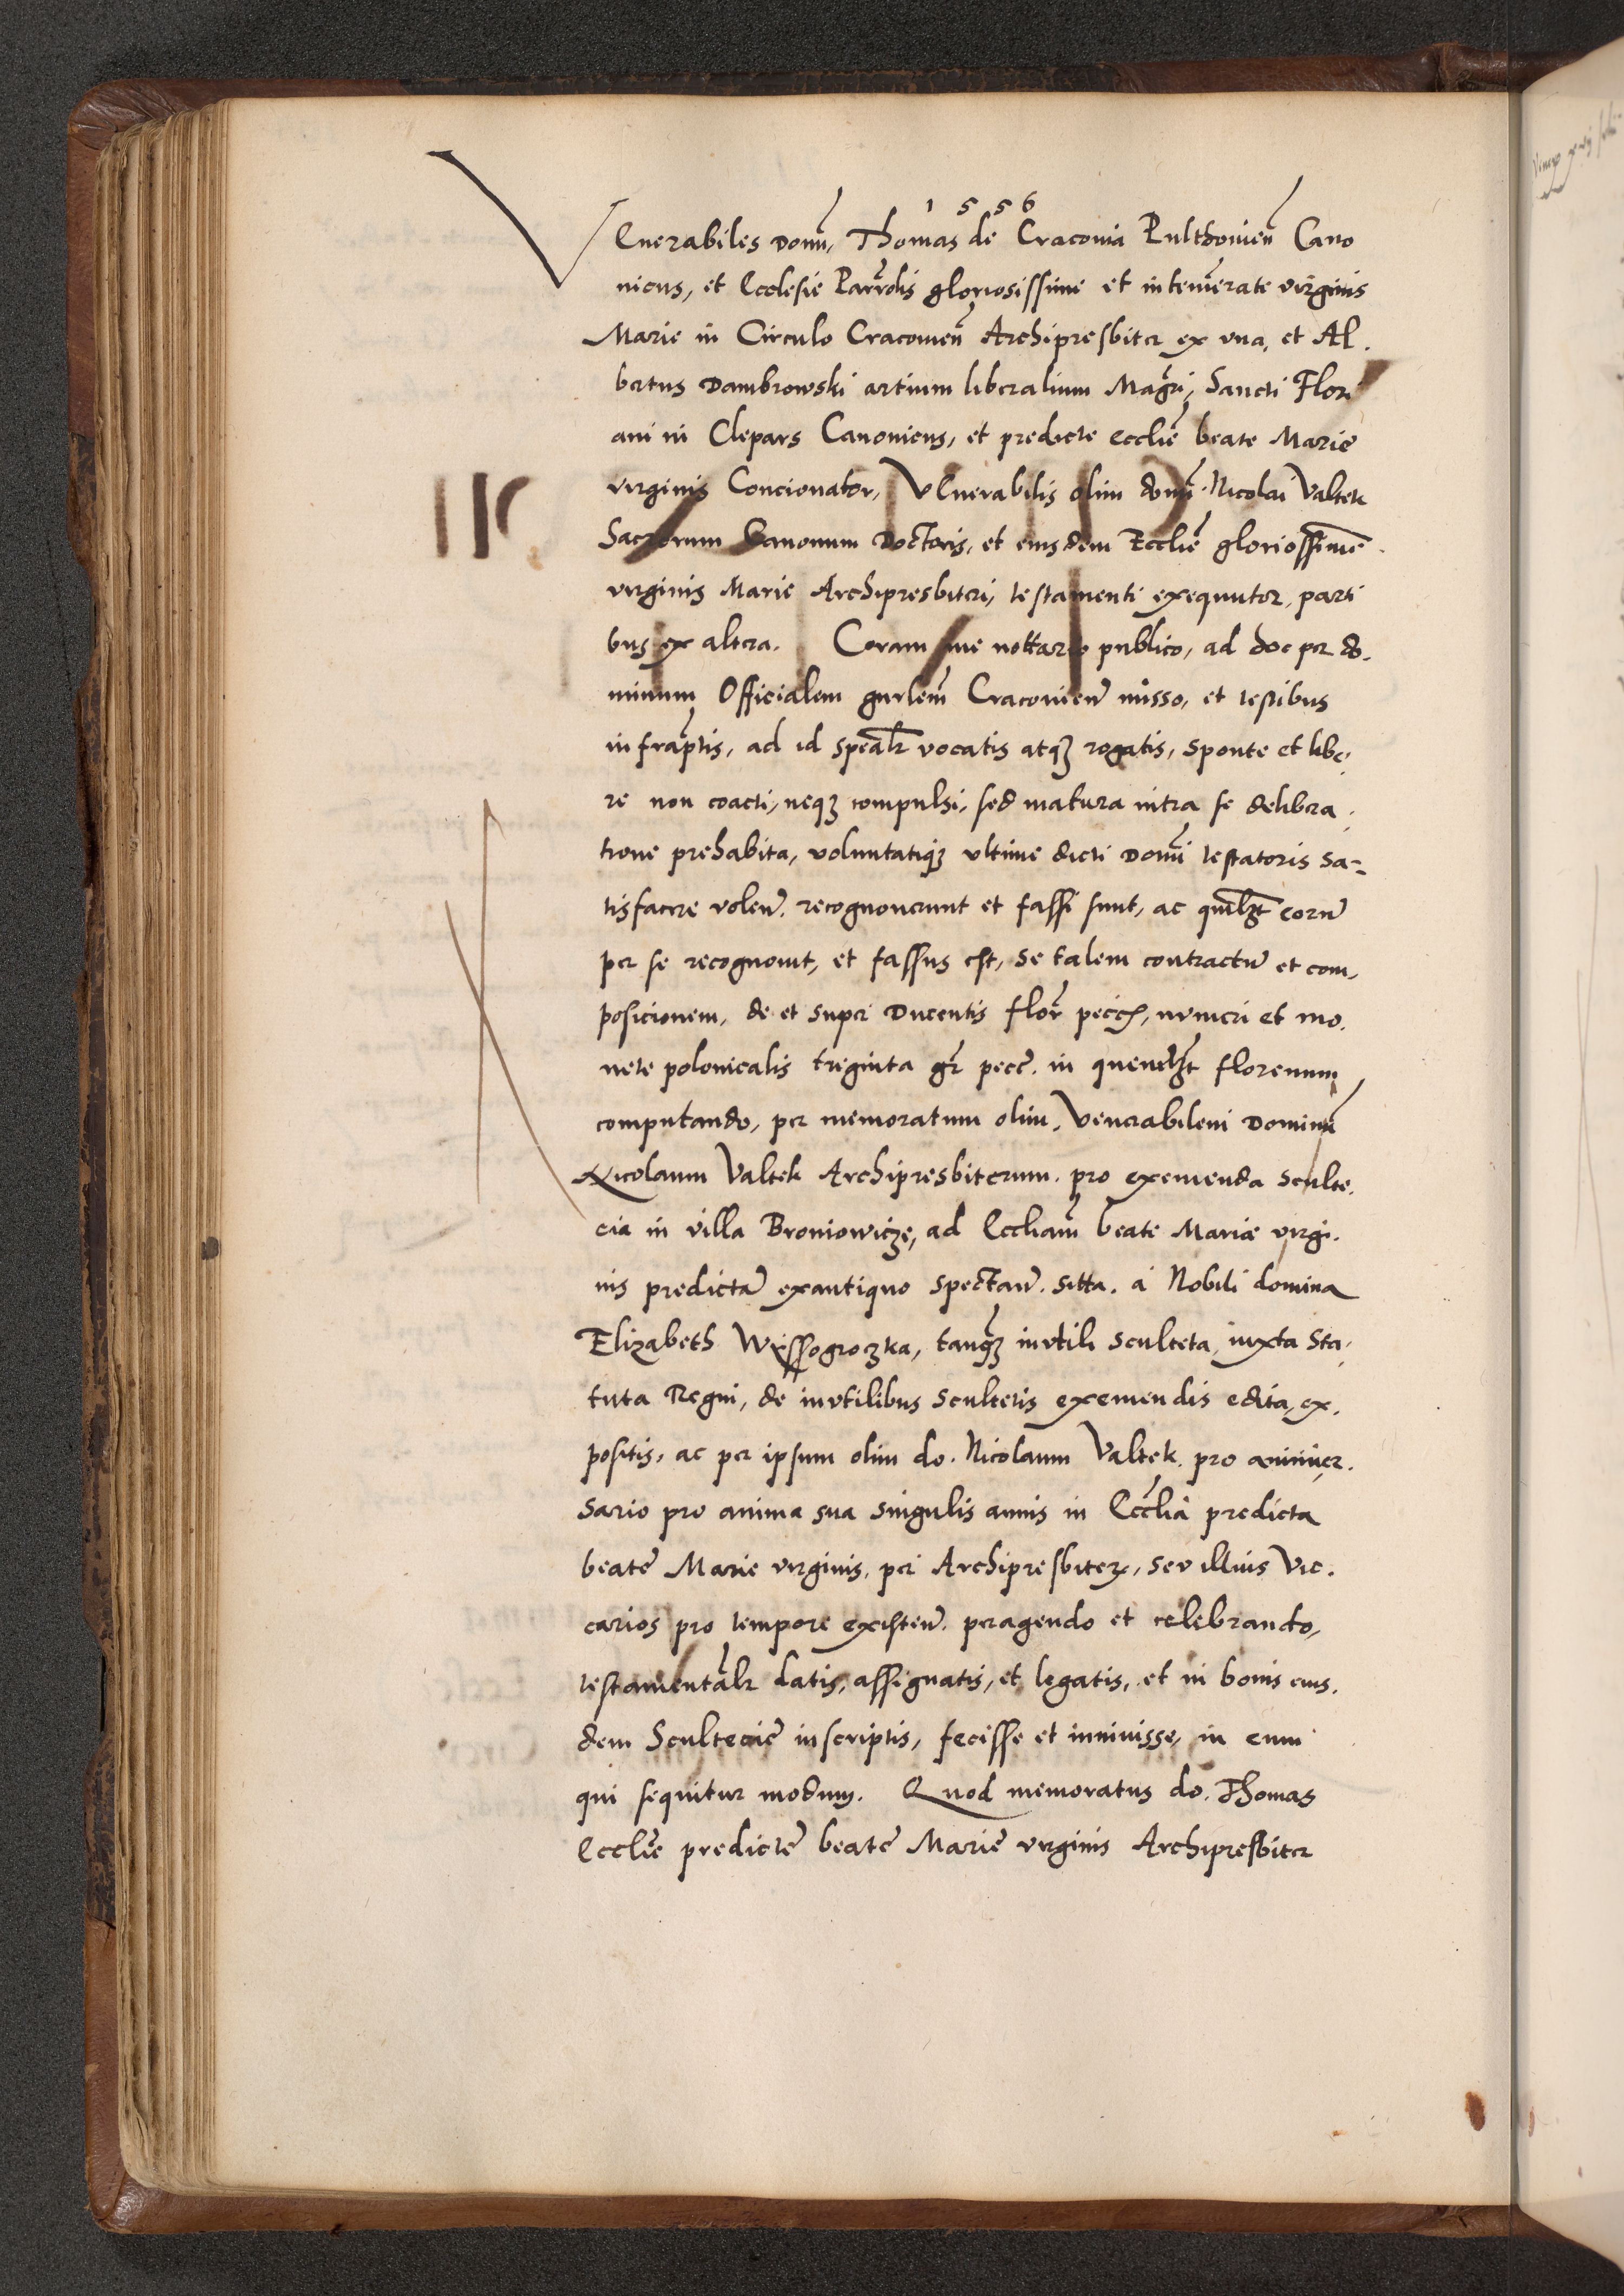 1556
VEnerabiles Domi, Thomas de Cracovia Pulthovien Cano
nicus, et Ecclesie Parrolis gloriosissime et intemerate virginis
Marie in Circulo Cracovien Archipresbiter ex vna, et Al.
bertus Dambrowski artium liberalium Magri, Sancti Flori
ani in Clepars Canonicus, et predicte Ecclie beate Marie
virginis Concionator, VEnerabilis olim domi Nicolai Valtek
Sacrorum Canonum Doctoris, et eiusdem Ecclie gloriosssime
virginis Marie Archipresbiteri, testamenti exequutor, parti
bus ex altera. Coram me nottario publico, ad hoc per do.
minum Officialem gnrlem Cracovien misso, et testibus
infraptis, ad id spealr vocatis atqz rogatis, sponte et libe,
re non coacti, neqz compulsi, sed matura intra se delibera,
tione prehabita, voluntatiqz vltime dicti Domi testatoris sa=
tisfacere volen. recognouerunt et fassi sunt, ac quilzt eorum
per se recognouit, et fassus est, se talem contractu et com,
posicionem, de et super Ducentis flor pecce, numeri et mo.
nete polonicalis treginta gr pecc. in quemlzt florenum
computando, per memoratum olim, Venerabilem Dominu
Nicolaum Valtek Archipresbiterum. pro exemenda Sculte.
cia in villa Broniowicze, ad Eccliam beate Marie virgi.
nis predicta exantiquo spectan. sitta. a Nobili domina
Elizabeth Wyssogroczka, tanqz invtili sculteta, iuxta Sta,
tuta Regni, de invtilibus Scultetis exemendis edita, ex.
positis, ac per ipsum olim do. Nicolaum Valtek. pro anniver.
sario pro anima sua singulis annis in Ecclia predicta
beate Marie virginis, per Archipresbiter, sev illius Vic.
carios pro tempore existen. peragendo et celebrando,
testamentalr datis, assignatis, et legatis, et in bonis eius.
dem Scultecie inscriptis, fecisse et innivisse, in eum
qui sequitur modum. Quod memoratus do. Thomas
Ecclie predicte beate Marie virginis Archipresbiter